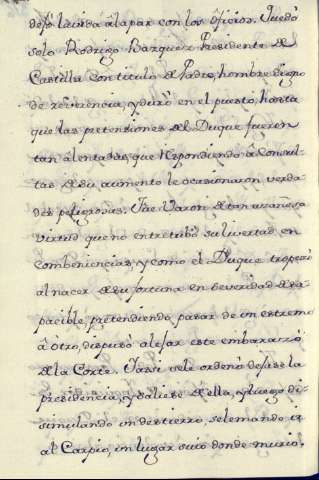 dejó la vida á la par con los ôficios. Quedó
solo Rodrigo Bazquez Presidente de
Castilla con titulo de Padre, hombre digno
de reverencia, y duró en el puesto, hasta
que las pretensiones del Duque fueron
tan alentadas, que respondiendo â Consul-
tas de su aumento le ocasionaron verda-
des peligrosas. Fue Varon de tan
virtud que no entretubo su livertad en
combeniencias, y como el Duque tropezó
al nacer de su fortuna en severidad desa-
pacible, pretendiendo pasar de un estremo
â otro, dispuso alejar este embarazo
de la Corte. Y assi se le ordenó dejase la
presidencia, y saliese de ella, y luego di-
simulando un destierro, se le mandó ir
al Carpio, un lugar suio donde murió.